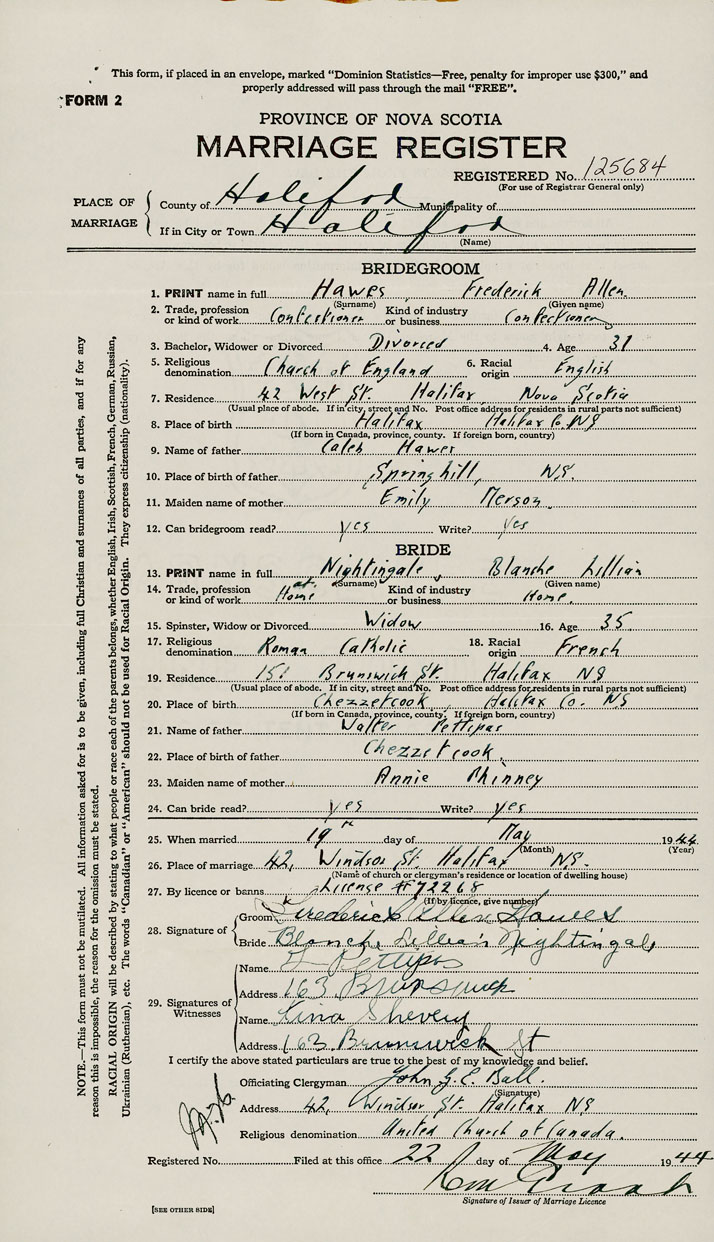 This form, if placed in an envelope, marked "Dominion Statistics—Free, penalty for improper use $300," and
properly addressed will pass through the mail "FREE".
FORM 2
PROVINCE OF NOVA SCOTIA
MARRIAGE REGISTER
REGISTERED No. 125684
(For use of Registrar General only)
PLACE OF MARRIAGE
County of Halifax Municipality of
If in City or Town Halifax
(Name)
BRIDEGROOM
1. PRINT name in full Hawes Frederick Allen
(Surname) (Given name)
2. Trade, profession or kind of work Confectioner Kind of industry or business Confectionery
3. Bachelor, Widower or Divorced Divorced 4. Age 31
5. Religious denomination Church of England 6. Racial origin English
7. Residence 42 West St. Halifax Nova Scotia
(Usual place of abode. If in city, street and No. Post office address for residents in rural parts not sufficient)
8. Place of birth Halifax Halifax Co. NS
(If born in Canada, province, county. If foreign born, country)
9. Name of father Caleb Hawes
10. Place of birth of father Springhill, NS.
11. Maiden name of mother Emily Merson
12. Can bridegroom read? yes Write? yes
BRIDE
13. PRINT name in full Nightingale, Blanche Lillian
(Surname) (Given name)
14. Trade, profession or kind of work at Home Kind of industry or business Home.
15. Spinster, Widow or Divorced Widow 16. Age 35
17. Religious denomination Roman Catholic 18. Racial origin French
19. Residence 151 Brunswick St. Halifax NS
(Usual place of abode. If in city, street and No. Post office address for residents in rural parts not sufficient)
20. Place of birth Chezzetcook Halifax Co. NS
(If born in Canada, province, county. If foreign born, country)
21. Name of father Walter Pettipas
22. Place of birth of father Chezzetcook
23. Maiden name of mother Annie Phinney
24. Can bride read? yes Write? yes
25. When married 19th day of May 1944
(Month) (Year)
26. Place of marriage 42, Windsor St. Halifax NS.
(Name of church or clergyman's residence or location of dwelling house)
27. By licence or banns License #72268
(If by licence, give number)
28. Signature of
Groom Frederick Allen Hawes
Bride Blanche Lillian Nightingale
29. Signatures of Witnesses
Name Pettipas
Address 163 Brunswick
Name Lina Shevery
Address 163 Brunswick St
I certify the above stated particulars are true to the best of my knowledge and belief.
Officiating Clergyman John G. E. Ball.
(Signature)
Address 42, Windsor St. Halifax NS
Religious denomination United Church of Canada.
Registered No. Filed at this office 22 day of May 1944
Signature of Issuer of Marriage Licence
[SEE OTHER SIDE]
NOTE.—This form must not be mutilated. All information asked for is to be given, including full Christian and surnames of all parties, and if for any
reason this is impossible, the reason for the omission must be stated.
RACIAL ORIGIN will be described by stating to what people or race each of the parents belongs, whether English, Irish, Scottish, French, German, Russian,
Ukrainian (Ruthenian), etc. The words "Canadian" or "American" should not be used for Racial Origin. They express citizenship (nationality).